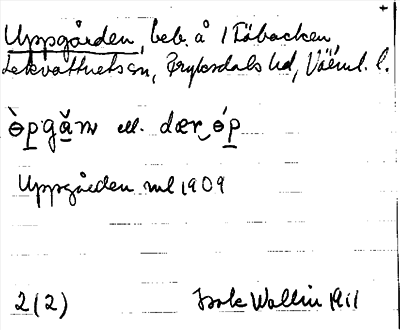 Uppgården, beb. å /Fäbacken,
Lekvattnets sn, Fryksdals hd, Värml. l.
ɵ̀pgǎm ell. dær‿ɵ́p
Uppgården ml 1909
2(2) Isak Wallin 1911